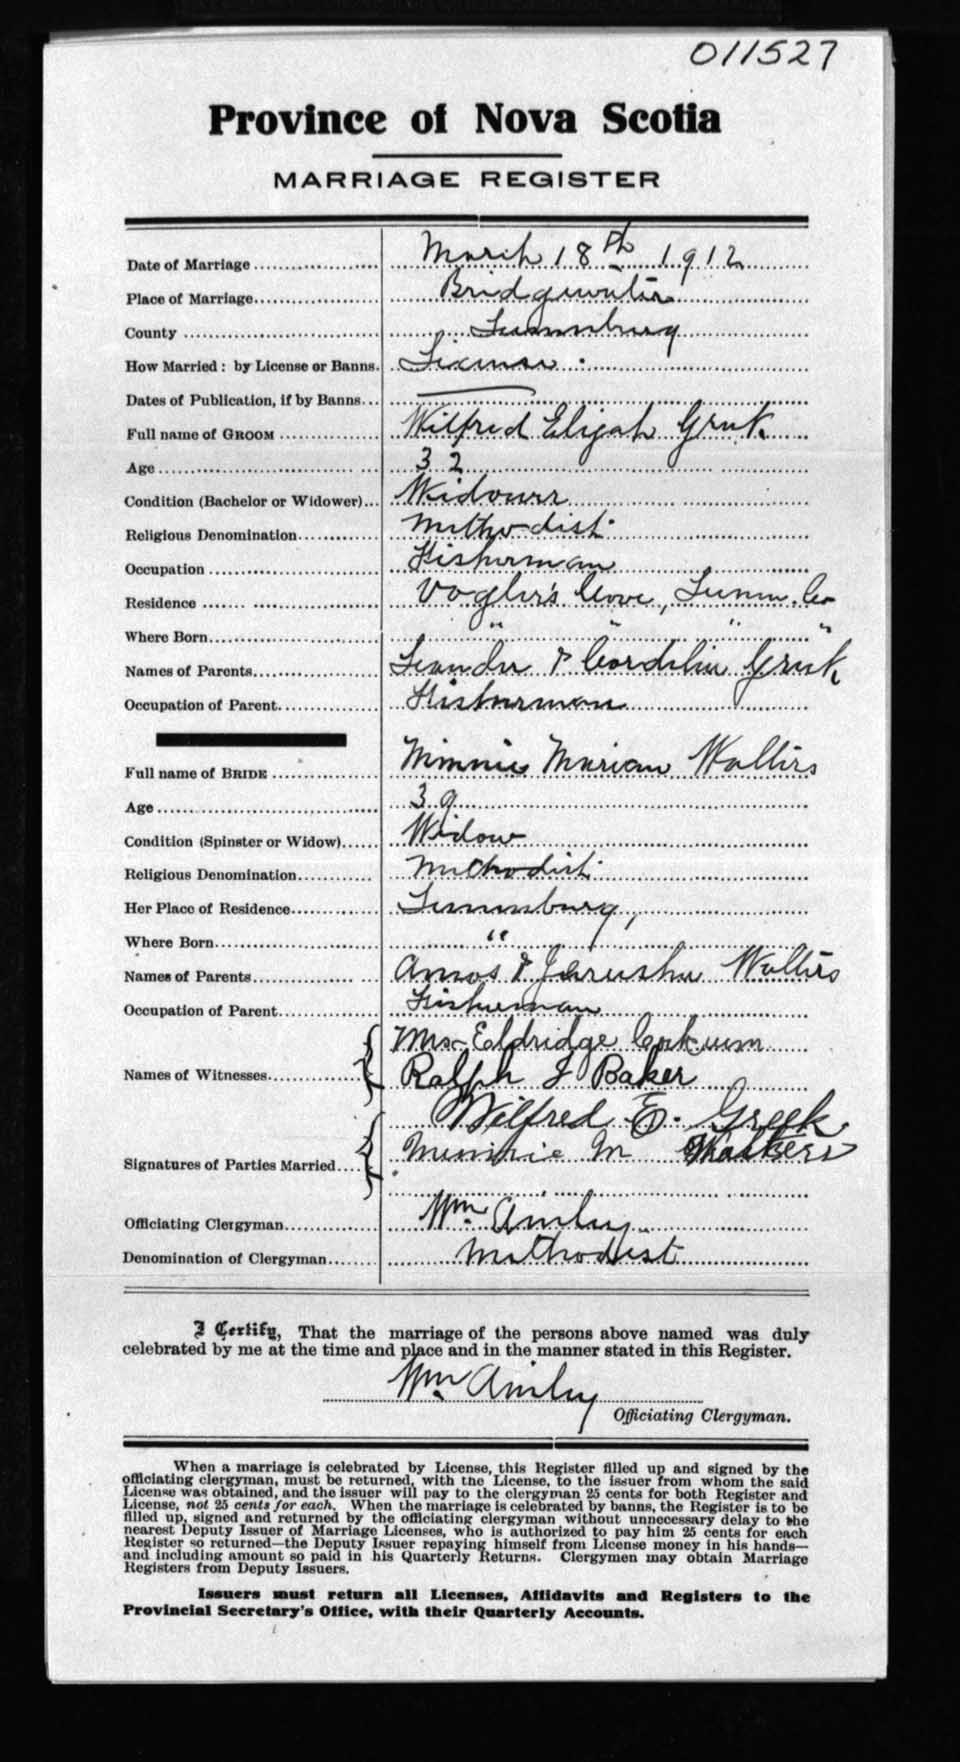 011527
Province of Nova Scotia
MARRIAGE REGISTER
Date of Marriage March 18th 1912
Place of Marriage Bridgewater
County Lunenburg
How Married: by License or Banns. License.
Dates of Publication, if by Banns —
Full name of GROOM Wilfred Elijah Greek
Age 32
Condition (Bachelor or Widower) Widower
Religious Denomination Methodist
Occupation Fisherman
Residence Vogler's Cove, Lunn. Co
Where Born " " " "
Names of Parents Leander & Cordelia Greek
Occupation of Parent Fisherman
Full name of BRIDE Minnie Marian Walters
Age 39
Condition (Spinster or Widow) Widow
Religious Denomination Methodist
Her Place of Residence Lunenburg,
Where Born "
Names of Parents Amos & Jerusha Walters
Occupation of Parent Fisherman
Mrs Eldridge
Names of Witnesses
Ralph J Baker
Wilfred E. Greek
Signatures of Parties Married Minnie M Walters
Officiating Clergyman Wm. Ainley
Denomination of Clergyman Methodist
I Certify, That the marriage of the persons above named was duly
celebrated by me at the time and place and in the manner stated in this Register.
Wm Ainley
Officiating Clergyman.
When a marriage is celebrated by License, this Register filled up and signed by the
officiating clergyman, must be returned, with the License, to the issuer from whom the said
License was obtained, and the issuer will pay to the clergyman 25 cents for both Register and
License, not 25 cents for each. When the marriage is celebrated by banns, the Register is to be
filled up, signed and returned by the officiating clergyman without unnecessary delay to the
nearest Deputy Issuer of Marriage Licenses, who is authorized to pay him 25 cents for each
Register so returned—the Deputy Issuer repaying himself from License money in his hands—
and including amount so paid in his Quarterly Returns. Clergymen may obtain Marriage
Registers from Deputy Issuers.
Issuers must return all Licenses, Affidavits and Registers to the
Provincial Secretary's Office, with their Quarterly Accounts.